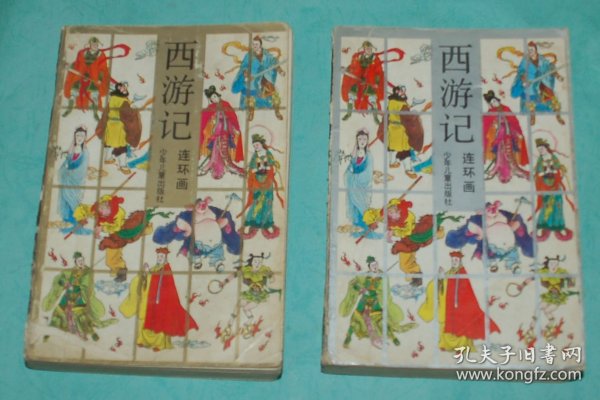 西游记
连环画
少年儿童出版社
西游记
连环画
少年儿童出版社
孔夫子旧书网
www.kongfz.com